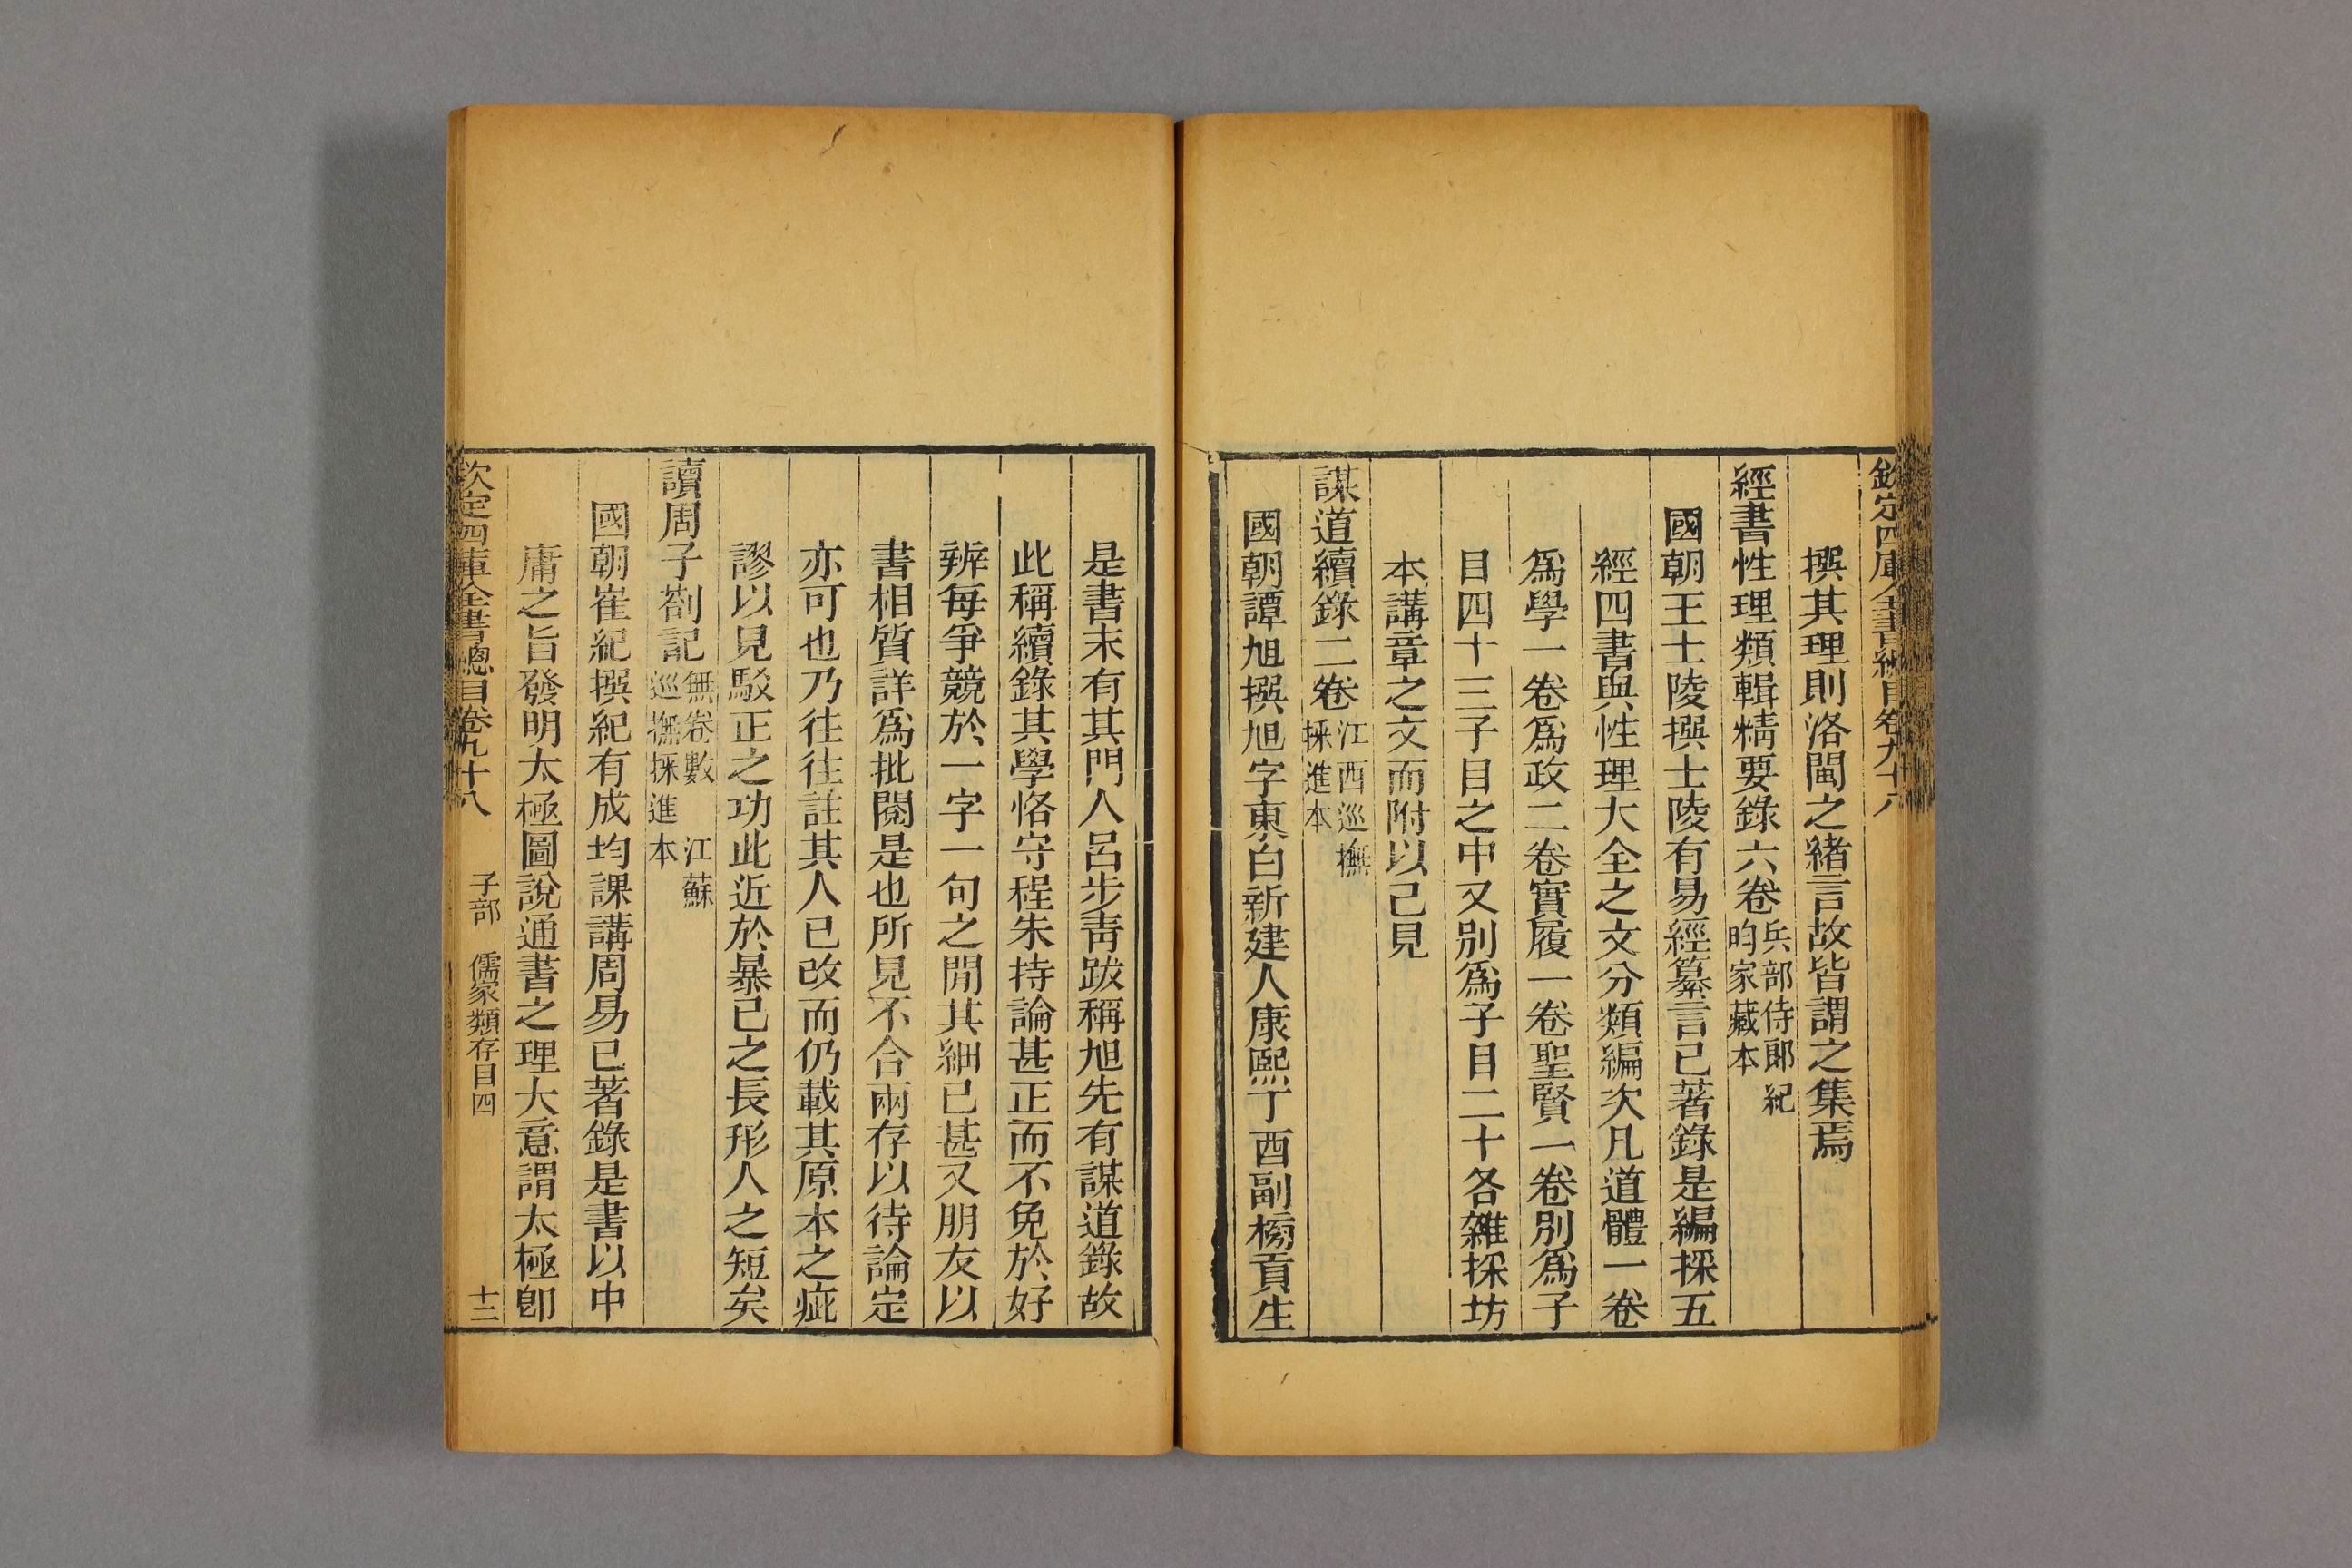 欽定四庫全書總目卷九十八
撰其理則洛閩之緒言故皆謂之集焉
經書性理類輯精要錄六卷兵部侍郎紀昀家藏本
國朝王士陵撰士陵有易經纂言已著錄是編採五
經四書與性理大全之文分類編次凡道體一卷
爲學一卷爲政二卷實履一卷聖賢一卷別爲子
目四十三子目之中又別爲子目二十各雜採坊
本講章之文而附以己見
謀道續錄二卷江西巡撫採進本
國朝譚旭撰旭字東白新建人康熙丁酉副榜貢生
是書末有其門人呂步靑跋稱旭先有謀道錄故
此稱續錄其學恪守程朱持論甚正而不免於好
辨每爭競於一字一句之閒其細已甚又朋友以
書相質詳爲批閱是也所見不合兩存以待論定
亦可也乃往往註其人已改而仍載其原本之疵
謬以見駁正之功此近於暴己之長形人之短矣
讀周子劄記無卷數 江蘇巡撫採進本
國朝崔紀撰紀有成均課講周易已著錄是書以中
庸之旨發明太極圖說通書之理大意謂太極卽
欽定四庫全書總目卷九十八 子部 儒家類存目四 十二